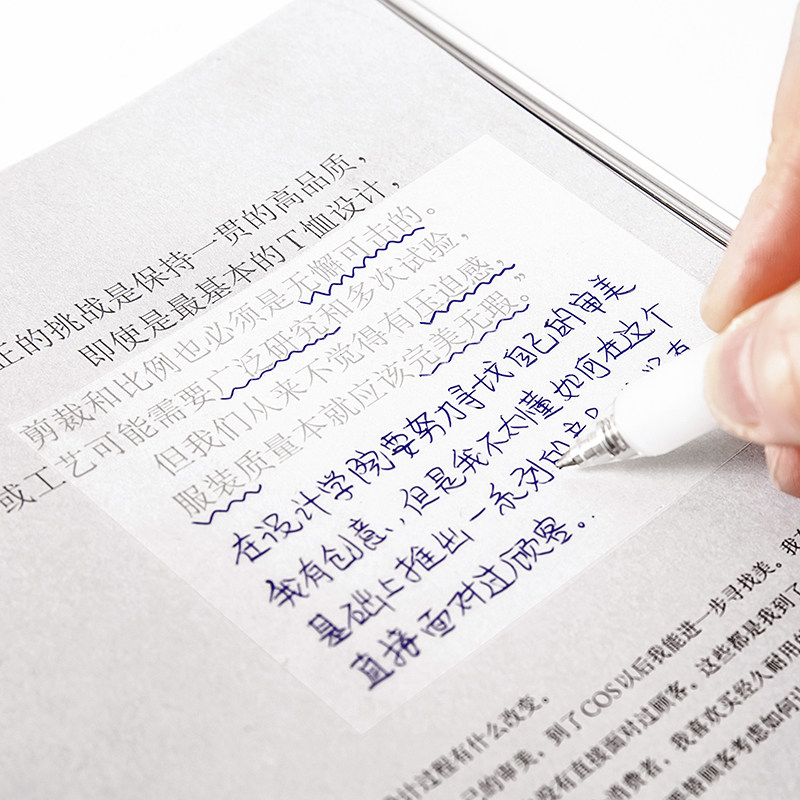 正的挑战是保持一贯的高品质，
即使是最基本的T恤设计，
剪裁和比例也必须是无懈可击的。
或工艺可能需要广泛研究和多次试验，
但我们从来不觉得有压迫感，
服装质量本就应该完美无瑕。
在设计学院要努力寻找自己的审美
我有创意，但是我不太懂如何在这个
基础上推出一系列的
直接面对过顾客。
计过程有什么改变。
己的审美，到了COS以后我能进一步寻找美。我
没有直接面对过顾客，这些都是我到了
消费者，我喜欢买经久耐用的
顾客考虑如何